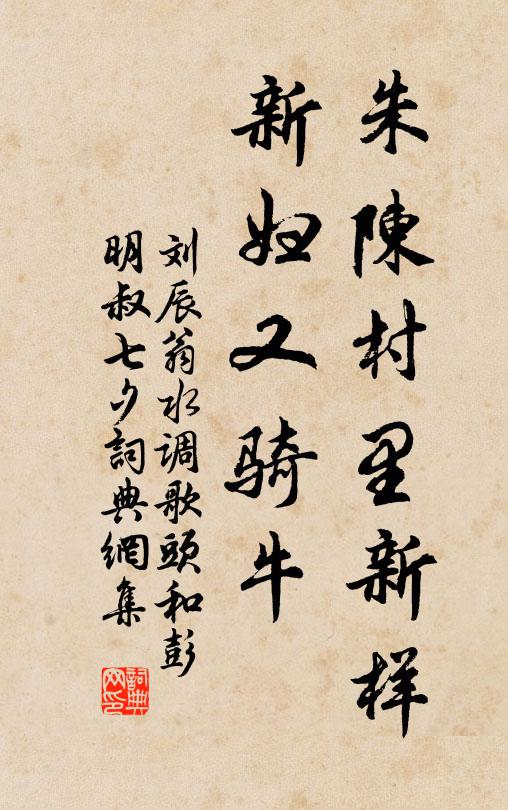 朱陳村里新样
新妇又骑牛
刘辰翁水调歌頭和彭
明叔七夕詞典網集
詞典
网印